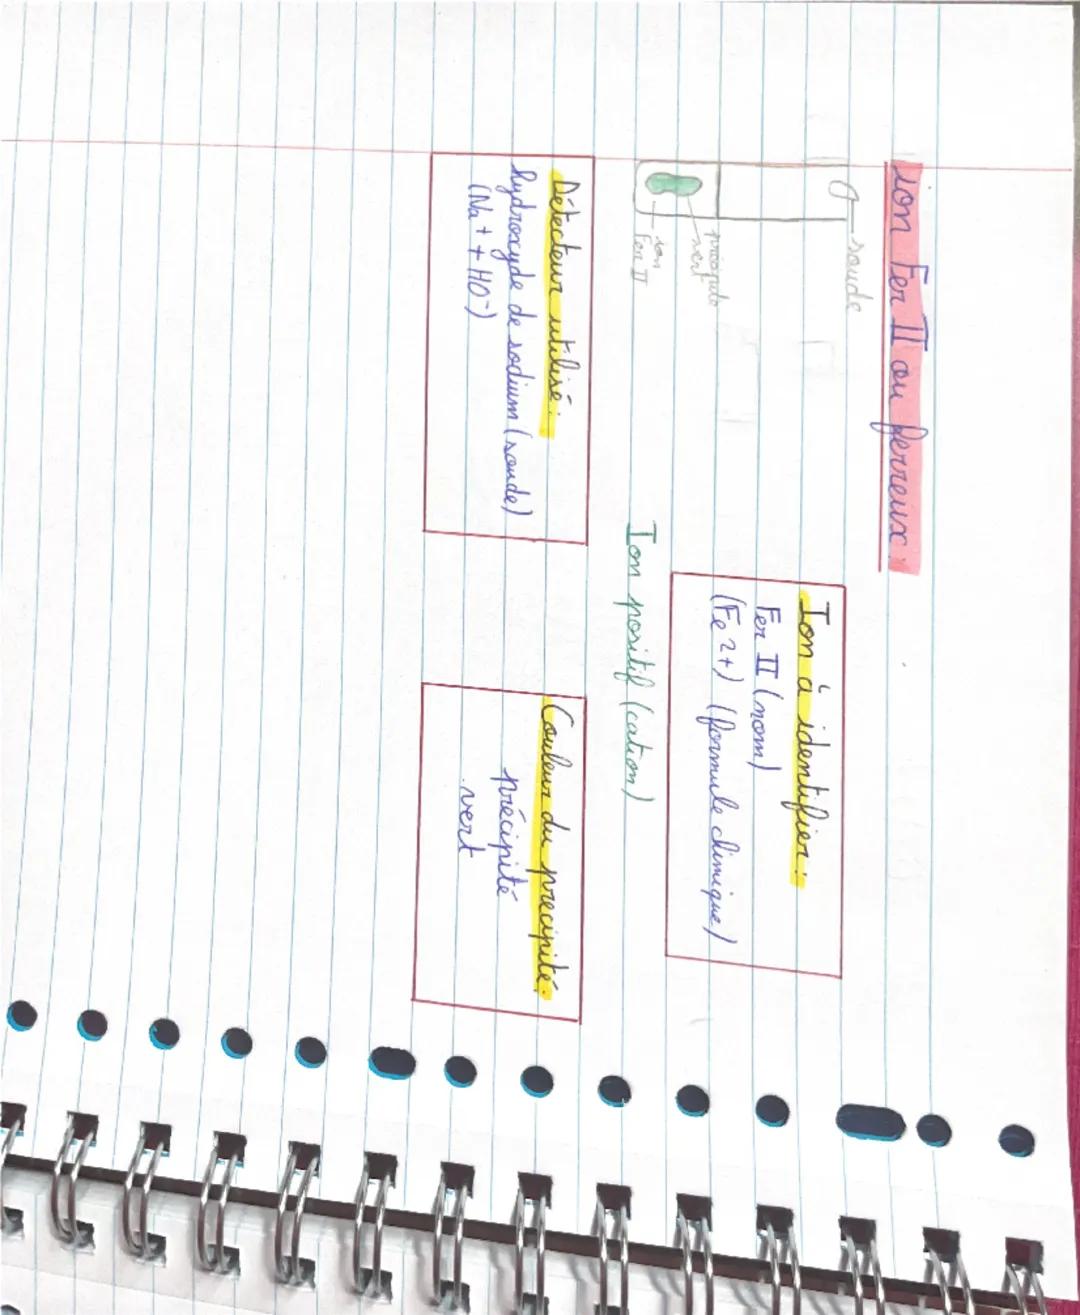 ion Fer II ou ferreux.
soude
précipité
vert
ion
Fer II
Ion à identifier :
Fer II (nom)
(Fe 2+) (formule chimique)
Ion positif (cation)
Détecteur utilisé :
hydroxyde de sodium (soude)
(Na + + HO-)
Couleur du precipité :
précipité
vert